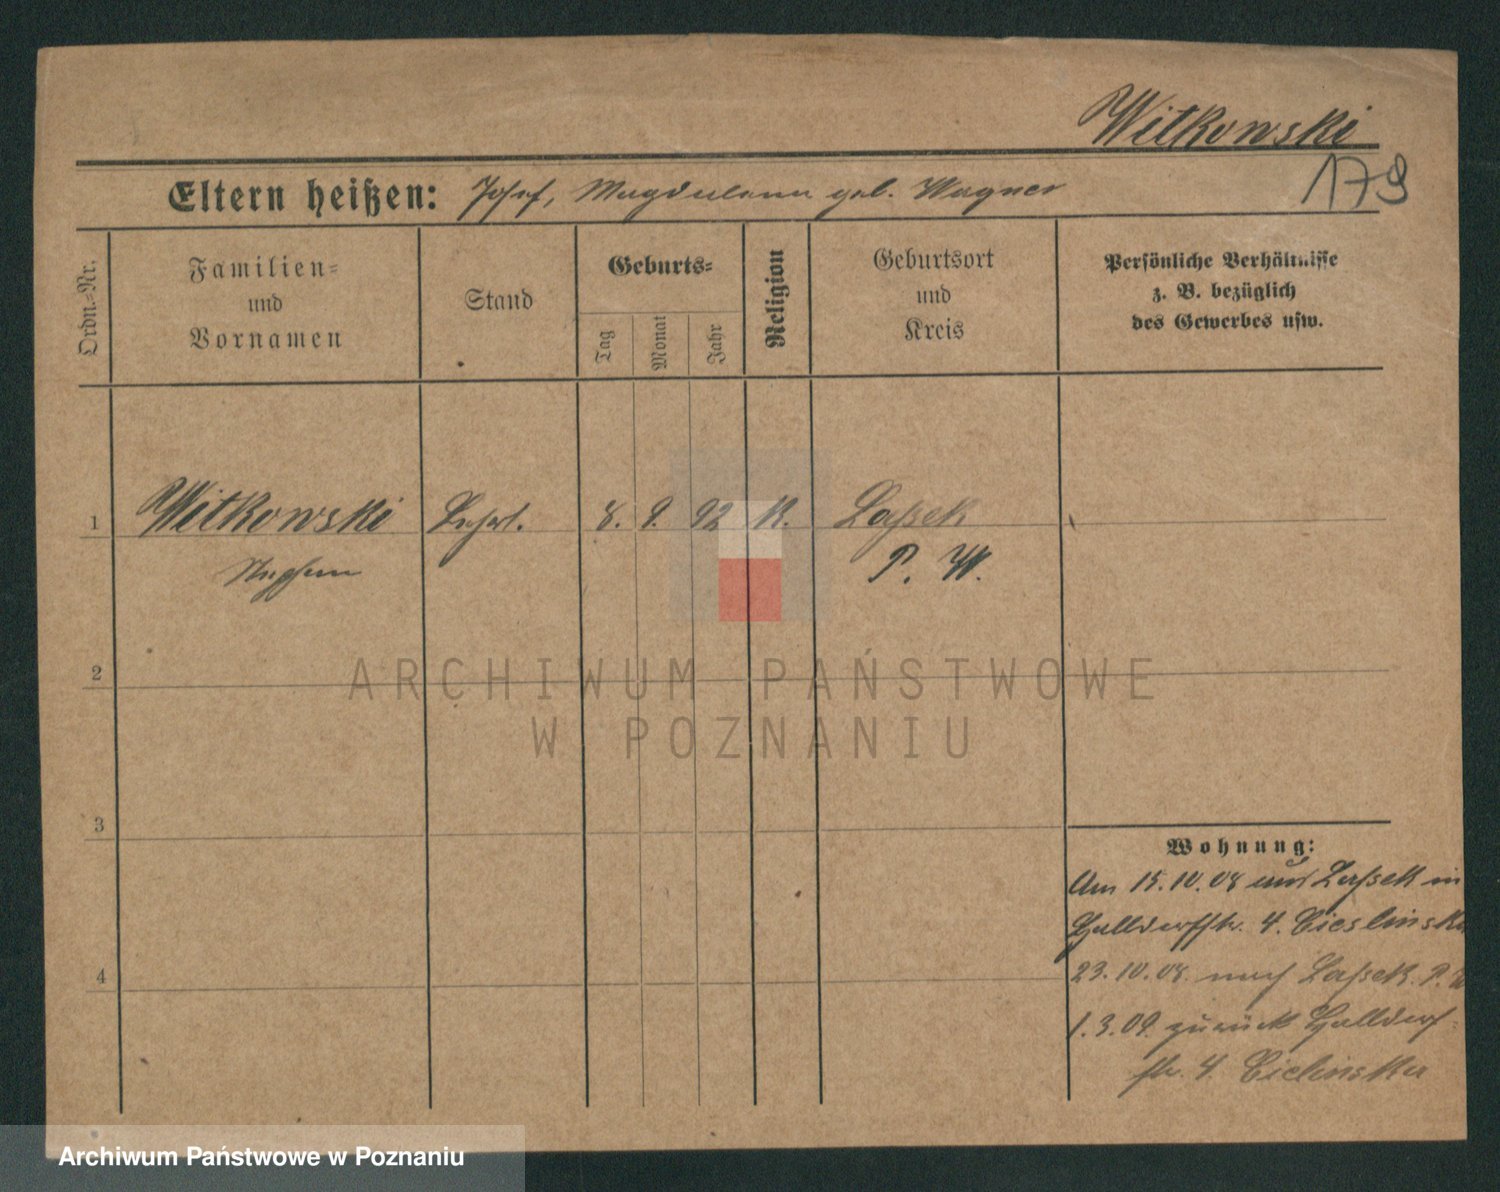 Witkowski
179
Eltern heißen: Josef, Magdalena geb. Wagner
Ordn.-Nr.
Familien-
und
Vornamen
Stand
Geburts-
Tag
Monat
Jahr
Religion
Geburtsort
und
Kreis
Persönliche Verhältnisse
z. B. bezüglich
des Gewerbes usw.
1 Witkowski 8. 9. 92 K. Lassek
Stephan P. W.
2
3
4
Wohnung:
Am 15.10.08 aus Lassek in
4. Cieslinska
23.10.08. nach Lassek. P. W
1.3.09. zurück
str. 4. Cielinska
ARCHIWUM PAŃSTWOWE
W POZNANIU
Archiwum Państwowe w Poznaniu